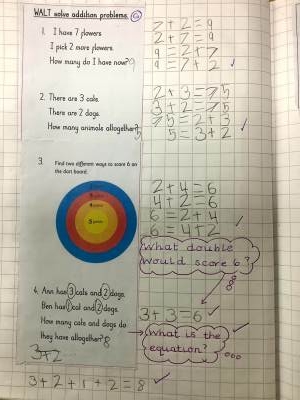 WALT solve addition problems.
1. I have 7 flowers
I pick 2 more flowers.
How many do I have now? 9
7 + 2 = 9
2 + 7 = 9
9 = 2 + 7
9 = 7 + 2
2. There are 3 cats.
There are 2 dogs.
How many animals altogether? 5
2 + 3 = 5
3 + 2 = 5
5 = 2 + 3
5 = 3 + 2
3. Find two different ways to score 6 on
the dart board.
2 + 4 = 6
4 + 2 = 6
6 = 2 + 4
6 = 4 + 2
What double
would score 6?
3 + 3 = 6
4. Ann has 3 cats and 2 dogs.
Ben has 1 cat and 2 dogs.
How many cats and dogs do
they have altogether? 8
3+2
What is the
equation?
3 + 2 + 1 + 2 = 8